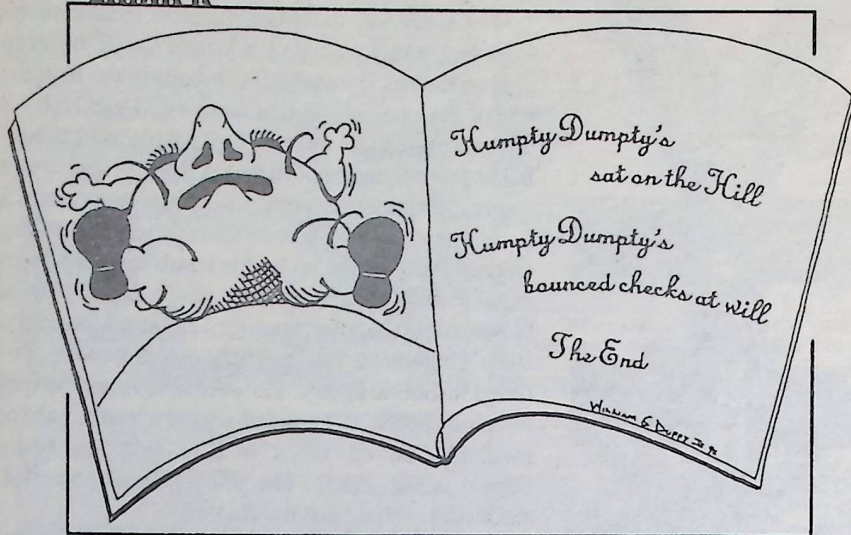 Humpty Dumpty's
sat on the Hill
Humpty Dumpty's
bounced checks at will
The End
William S